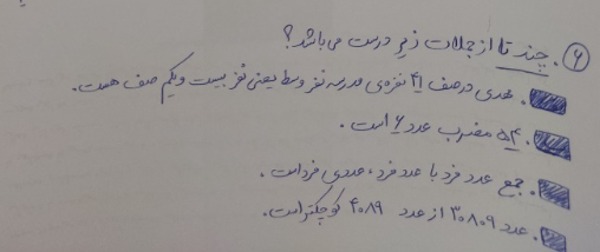 ۶. چند تا از جملات زیر درست می‌باشد؟
مهدی در صف ۴۱ نفره‌ی مدرسه نفر وسط یعنی نفر بیست و یکم صف هست.
۵۴ مضرب عدد ۶ است.
جمع عدد فرد با عدد فرد، عددی فرد است.
عدد ۳۰۸۰۹ از عدد ۴۰۸۹ کوچکتر است.